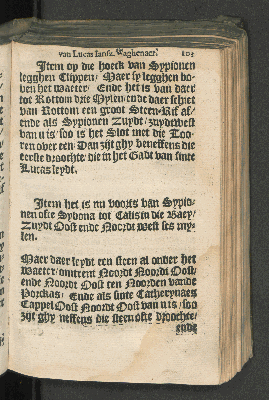 van Lucas Iansz. Waghenaer. 103
Item op die hoeck van Sypionen
legghen Clippen/ Maer sy legghen bo-
ven het waeter/ Ende het is van daer
tot Rottom drie Mylen/ ende daer schiet
van Rottom een groot Steen-Rif af/
ende als Sypionen Zuydt/ zuydtwest
van u is/ soo is het Slot met die Too-
ren over een/ Dan zijt ghy beneffens die
eerste draochte/ die in het Gadt van sinte
Lucas leydt.
Item het is nu voorts van Sypio-
nen ofte Sydona tot Calis in die Baey/
Zuydt Oost ende Noordt west ses my-
len.
Maer daer leydt een steen al onder het
Waeter/ omtrent Noordt Noordt Oost/
ende Noordt Oost ten Noorden vande
Porckas/ Ende als sinte Catherynaes
Cappel Oost Noordt Oost van u is/ soo
zijt ghy neffens die steen ofte droochte/
ende